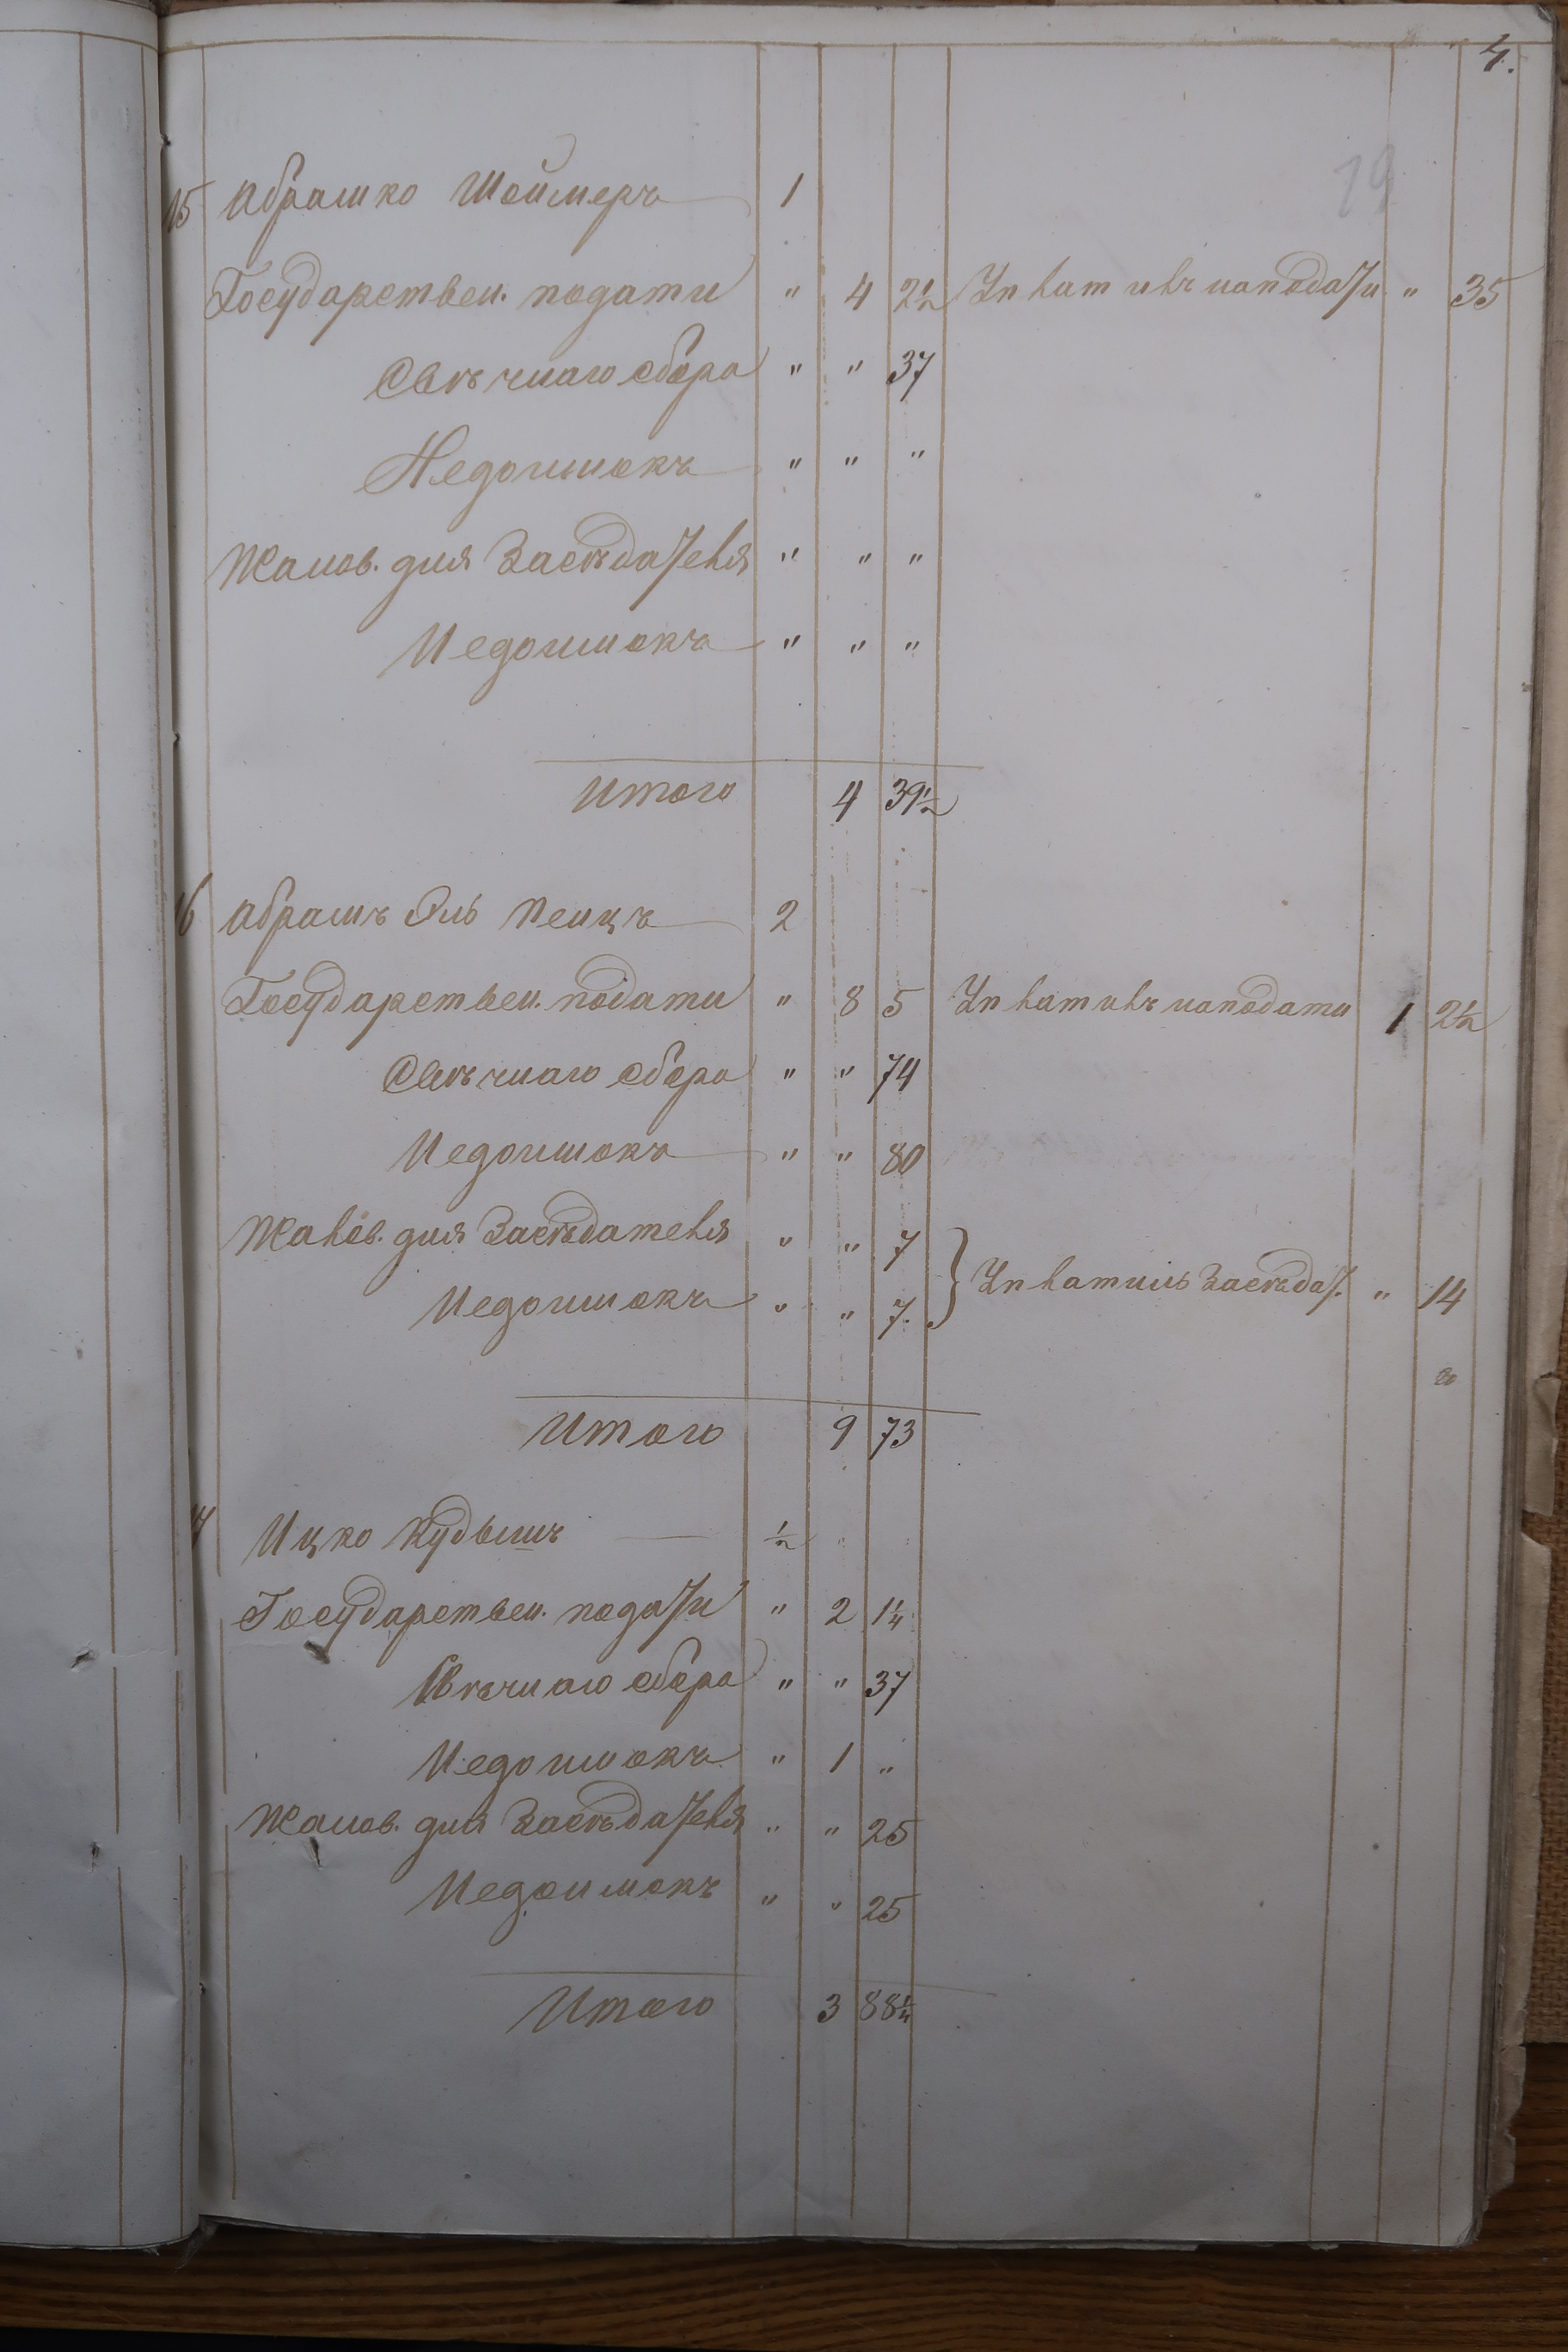 4.
19
15 Абрашко Шеймеръ 1
Государствен. подати " 4 2½ Уплатилъ на подати " 35
Свѣчнаго сбора " " 37
Недоимокъ " " "
Жалов. для Засѣдателя " " "
Недоимокъ " " "
Итого 4 39½
16 Абрамъ Эль 2
Государствен. подати " 8 5 Уплатилъ на подати 1 2½
Свѣчнаго сбора " " 74
Недоимокъ " " 80
Жалов. для Засѣдателя " " 7
Недоимокъ " " 7. } Уплатилъ Засѣдат. " 14
Итого 9 73
Ицко Кудышъ ½ " "
Государствен. подати " 2 1¼
Свѣчнаго сбора " " 37
Недоимокъ " 1 "
Жалов. для Засѣдателя " " 25
Недоимокъ " " 25
Итого 3 88¼